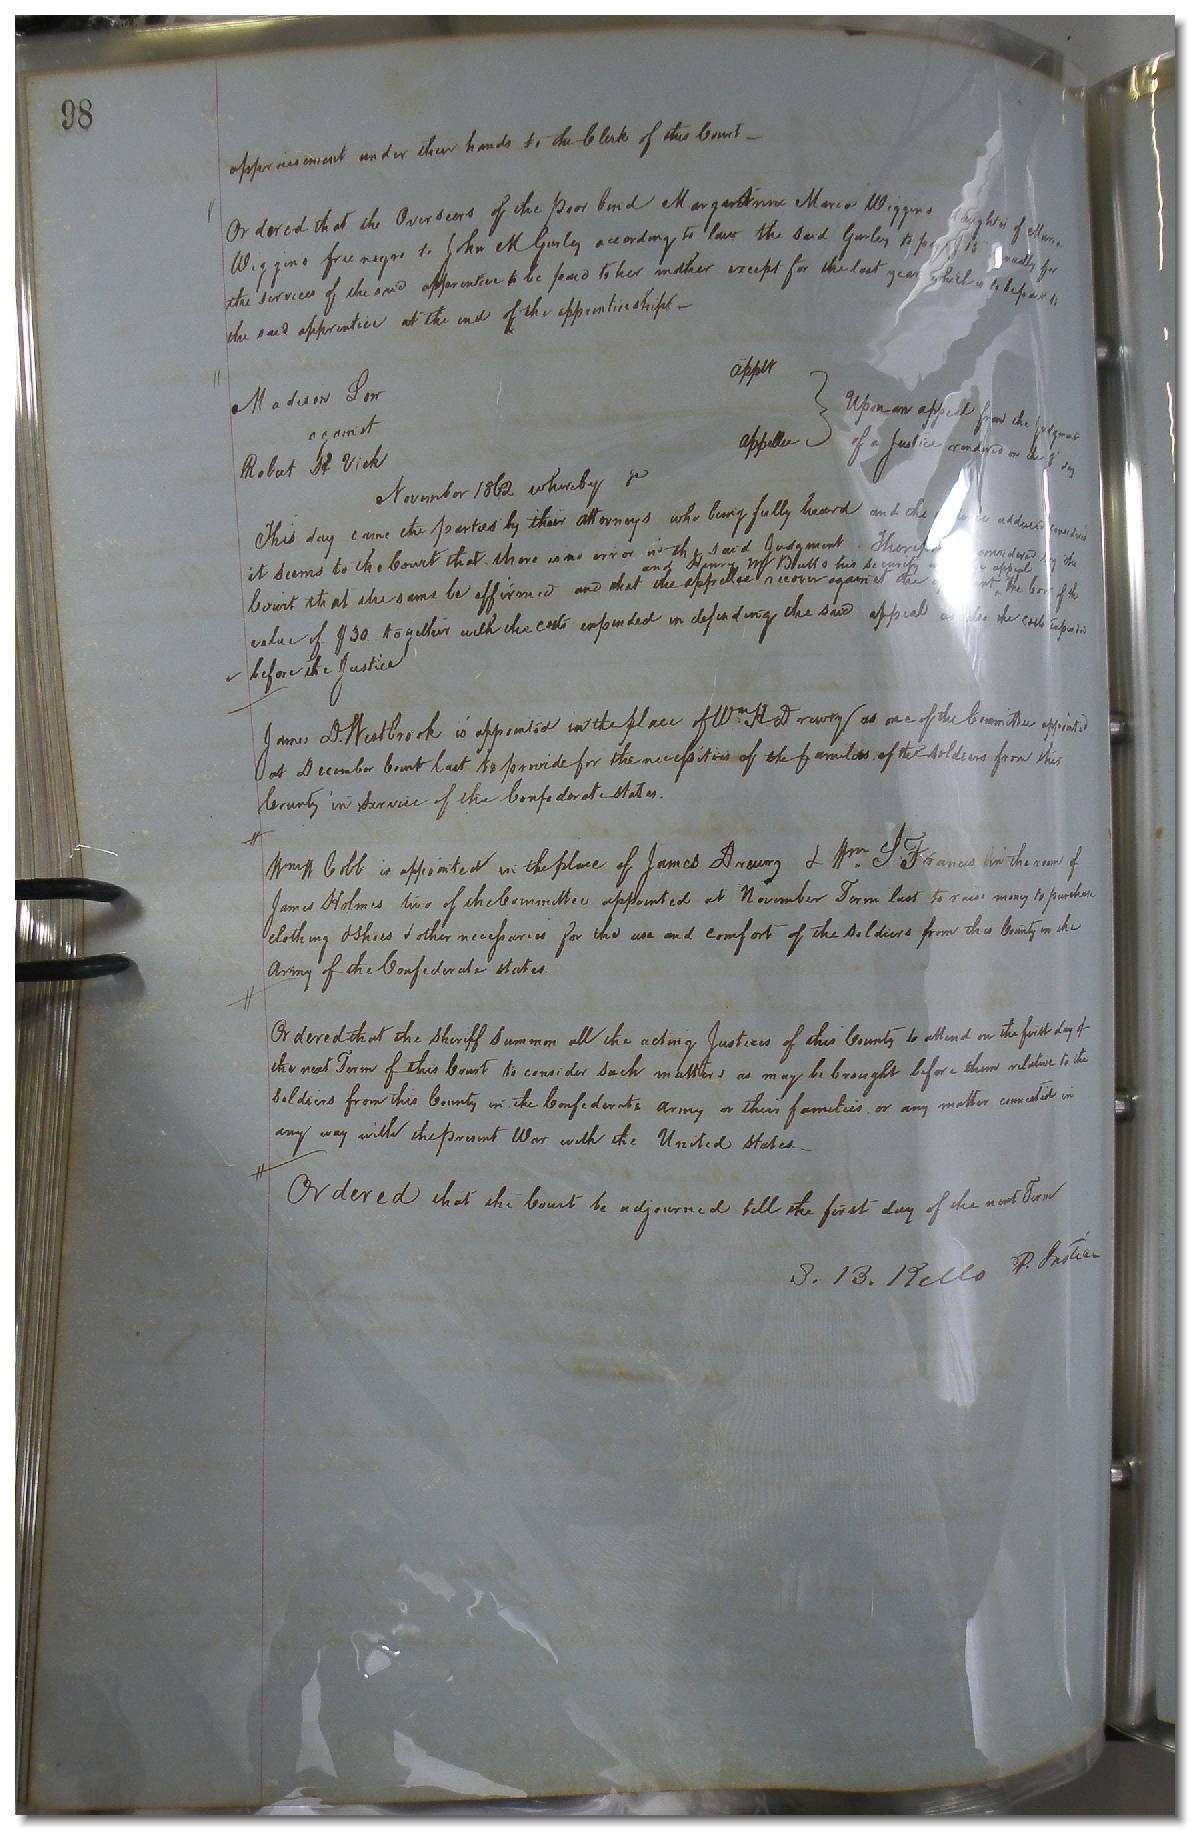 98
appraisement under their hands to the Clerk of this Court —
Ordered that the Overseers of the poor bind Margaret Anne Maria Wiggins daughter of Maria
Wiggins free negro to John M Gurley according to law the said Gurley to pay annually for
the services of the said apprentice to be paid to her mother except for the last year which is to be paid to
the said apprentice at the end of the apprenticeship —
Madison Low applt
against
Robert Vick appellee
Upon an appeal from the judgment
of a Justice rendered on the 8 day
November 1862 whereby &c
This day came the parties by their attorneys who being fully heard and the adduced
it seems to the Court that there is no error in the said Judgment. Therefore considered by the
and Henry Butts his security appeal
Court that the same be affirmed and that the appellee recover against the the Cow of the
value of $30 together with the costs expended in defending the said appeal as also the costs expended
before the Justice
James D. Westbrook is appointed in the place of Wm H Drewry as one of the Committee appointed
at December Court last to provide for the necessities of the families of the soldiers from this
County in service of the Confederate States.
Wm H Cobb is appointed in the place of James Drewry & Wm S Francis in the room of
James Holmes two of the Committee appointed at November Term last to raise money to purchase
clothing shoes & other necessaries for the use and comfort of the soldiers from this County in the
army of the Confederate States
Ordered that the sheriff summon all the acting Justices of this County to attend on the first day of
the next Term of this Court to consider such matters as may be brought before them relative to the
soldiers from this County in the Confederate army or their families or any matter connected in
any way with the present War with the United States —
Ordered that the Court be adjourned till the first day of the next Term
S. B. Kello P. Justice